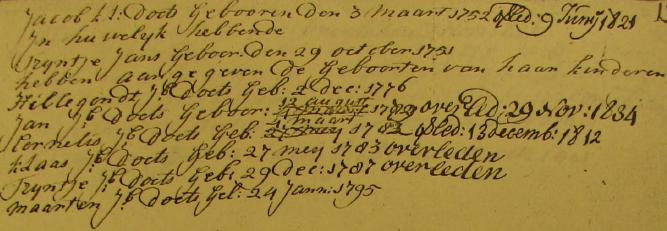 Jacob Kl: Doets Gebooren den 3 maart 1752 Gled: 9 Junij 1821
Jn huwelyk hebbende
Tryntje Jans Geboor: den 29 october 1751
hebben aangegeven de Geboorten van haar kinderen
Hillegondt Jb: Doets Geb: 2 dec: 1776
Jan Jb: Doets Geboor: 12 august overled: 29 Nov: 1834
Cornelis Jb: Doets Geb: 4 maart 178 Gled: 13 decemb: 1812
klaas Jb: Doets Geb: 27 mey 1783 overleden
Tryntje Jb: Doets Geb: 29 dec: 1787 overleden
maarten Jb: Doets Geb: 24 Jann: 1795